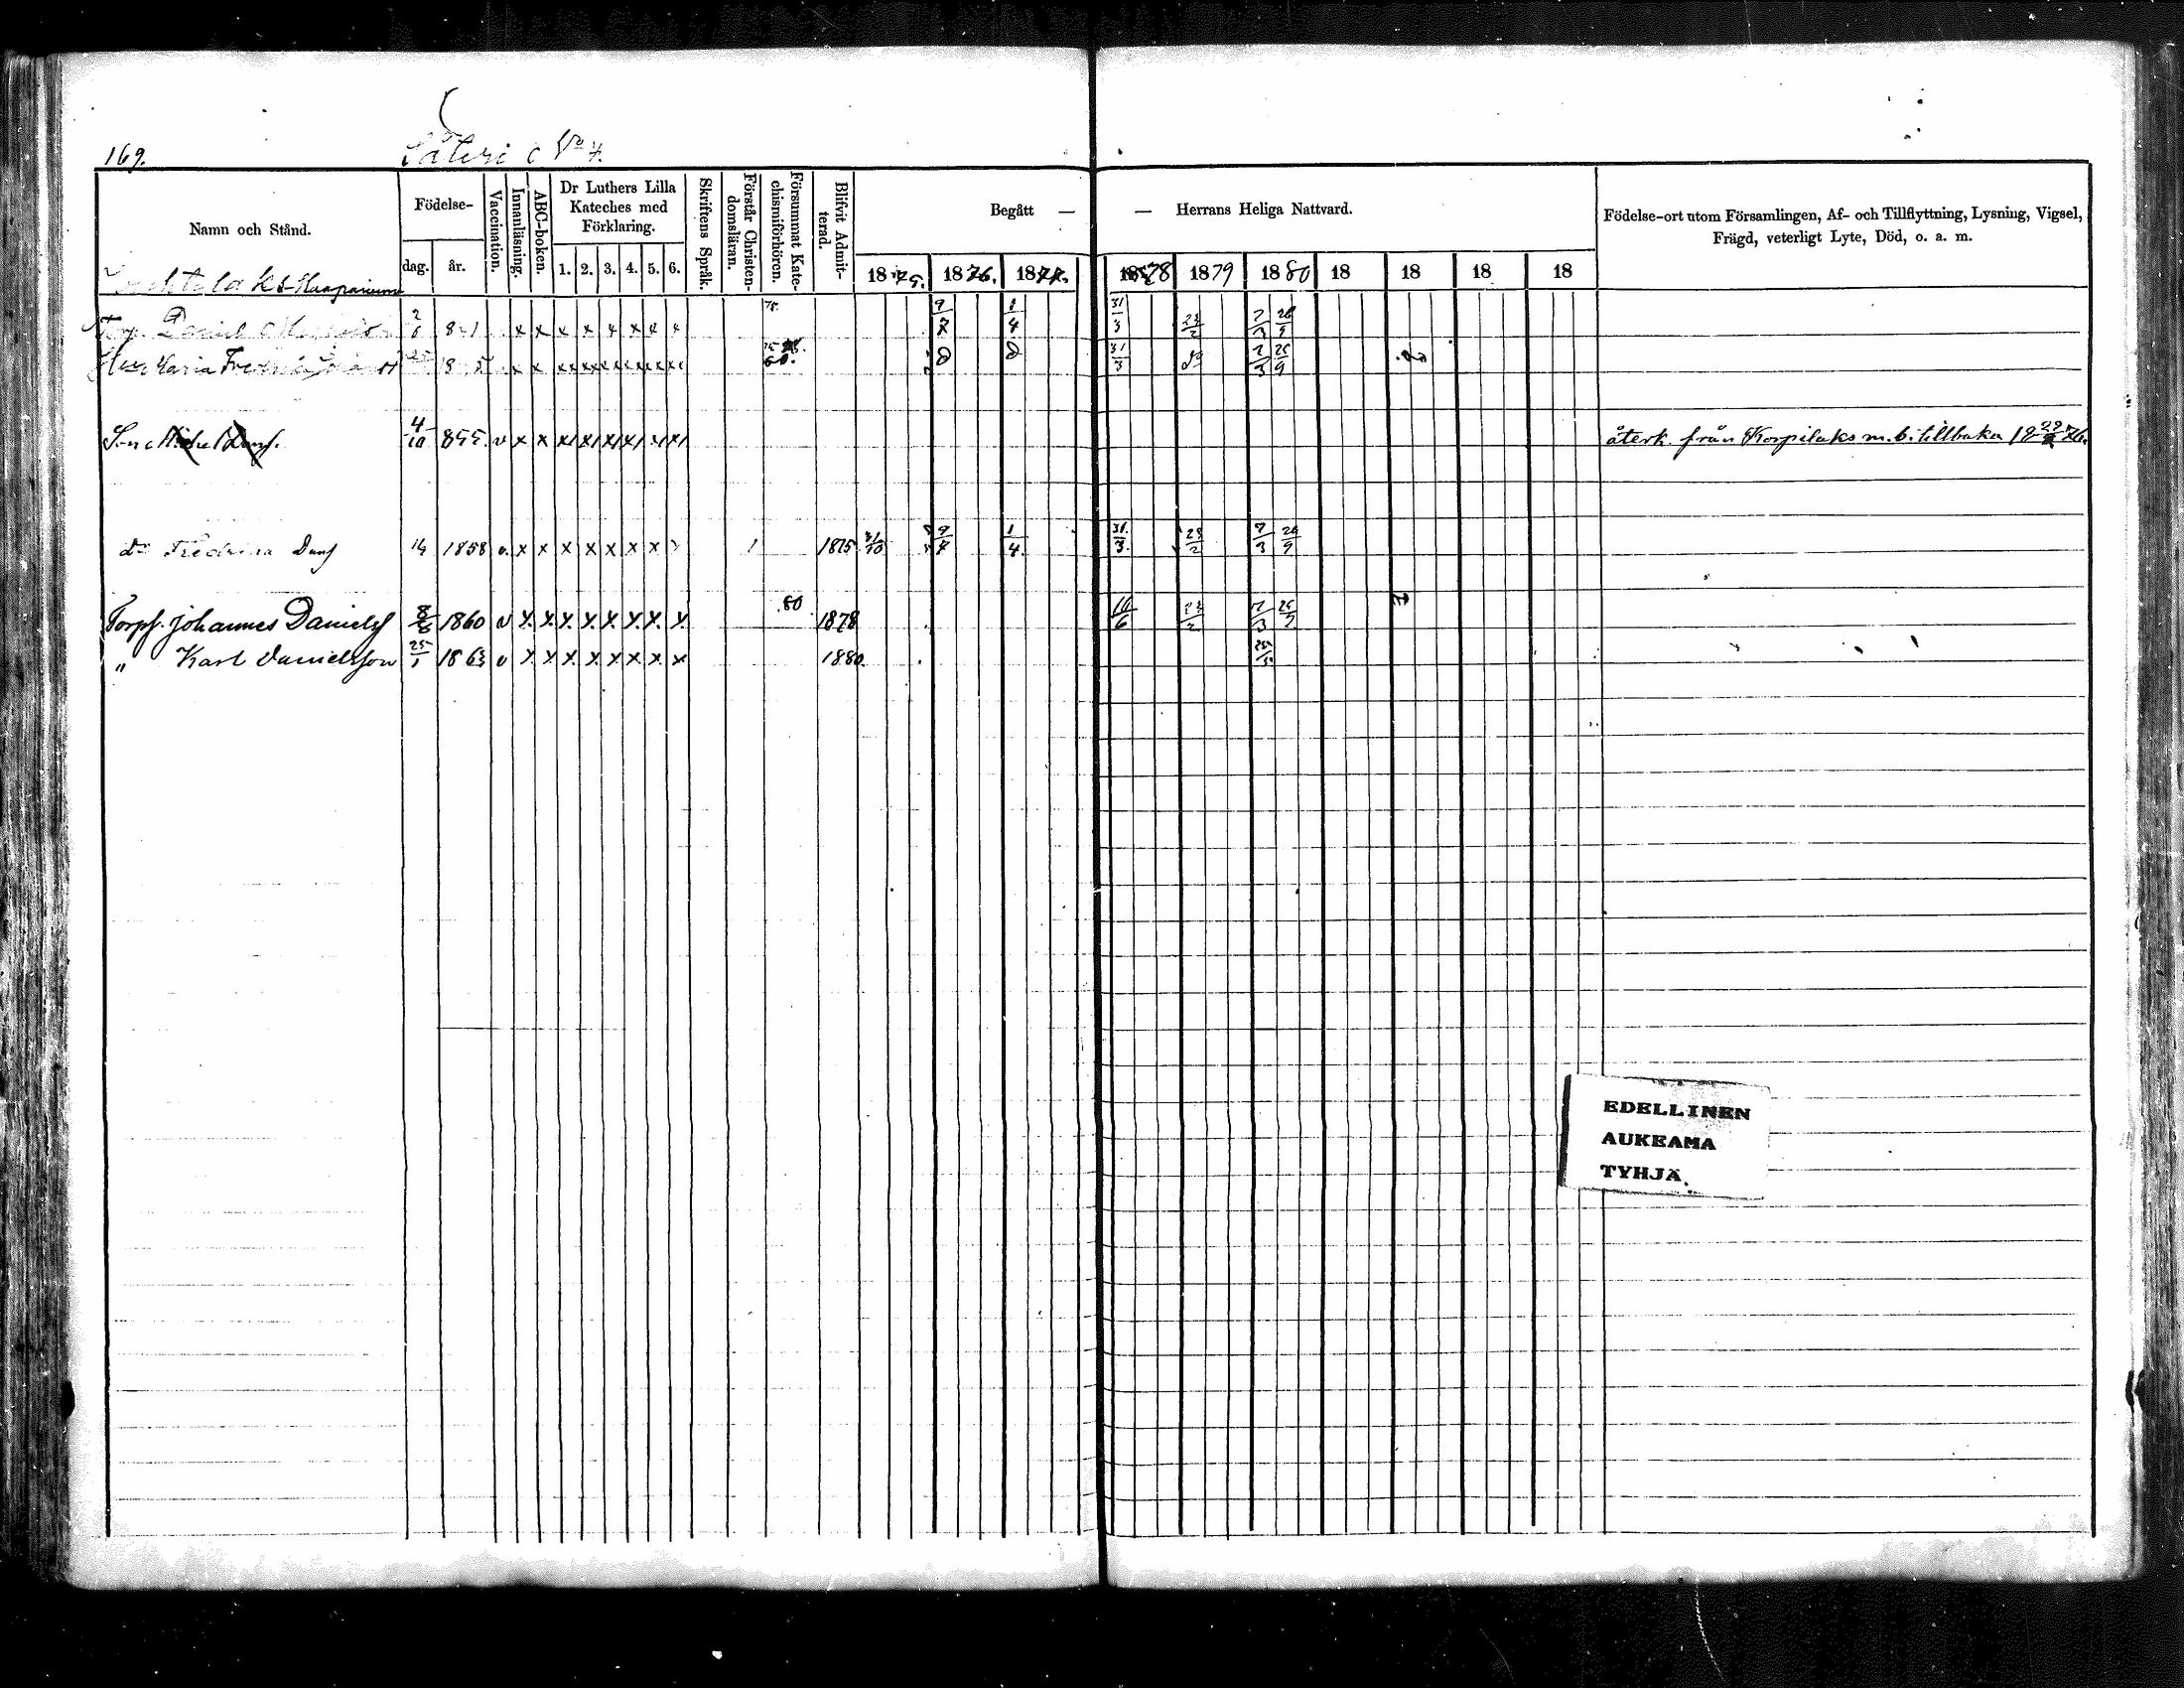 169. Säteri No 7.
Namn och Stånd.
Födelse-
dag. år.
Vaccination.
Innanläsning.
ABC-boken.
Dr Luthers Lilla Kateches med Förklaring.
1. 2. 3. 4. 5. 6.
Skriftens Språk.
Förstår Christendomsläran.
Försummat Katechismiförhören.
Blifvit Admitterad.
Begått — — Herrans Heliga Nattvard.
1875. 1876. 1877. 1878 1879 1880 18 18 18 18
Födelse-ort utom Församlingen, Af- och Tillflyttning, Lysning, Vigsel,
Frägd, veterligt Lyte, Död, o. a. m.
Torp. Daniel 2/6 x x x x x x x x 9/7 1/4 31/3 23/2 7/3 26/9
Hus. Maria x x 31/3 7/3 26/9
Son Michel Dans. 4/10 855. v x x återk. från Korpilaks m. b. tillbaka
do Fredrika Dans 14 1858 v. x x x x x x x 1 1875 31/10 9/7 1/4 31/3 23/2 7/3 26/9
Torpf. Johannes Daniels 8/6 1860 v x. x. x. x. x. x. x. x. 80 1878 16/6 23/2 7/3 26/9
" Karl Danielsson 25/1 1863 v x. x x. x. x x. x. x 1880
EDELLINEN
AUKEAMA
TYHJÄ.